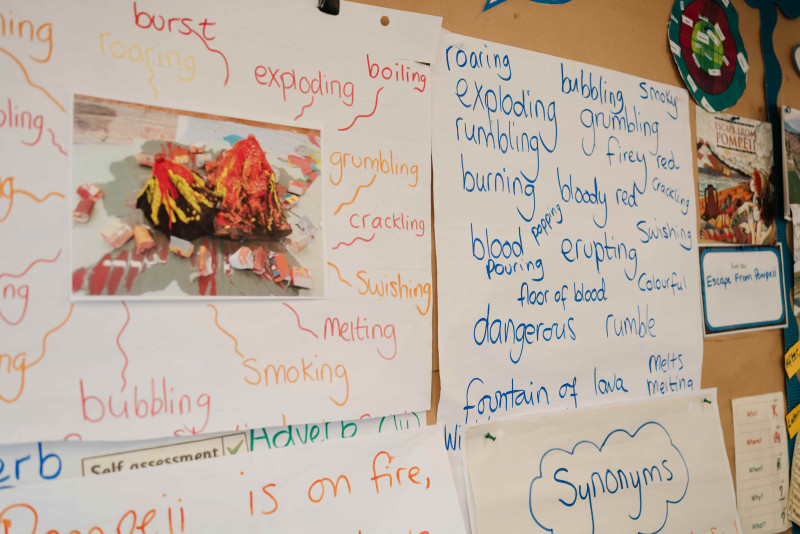 burst
roaring
exploding
boiling
grumbling
crackling
Swishing
Melting
Smoking
bubbling
roaring
bubbling
smoky
exploding
grumbling
rumbling
firey red
burning
bloody red
crackling
popping
blood
pouring
erupting
Swishing
floor of blood
Colourful
dangerous
rumble
fountain of lava
melts
melting
ESCAPE FROM
POMPEII
Escape From Pompeii
Self assessment
Adverb
is on fire,
Synonyms
Who?
Where?
When?
Why?
What?